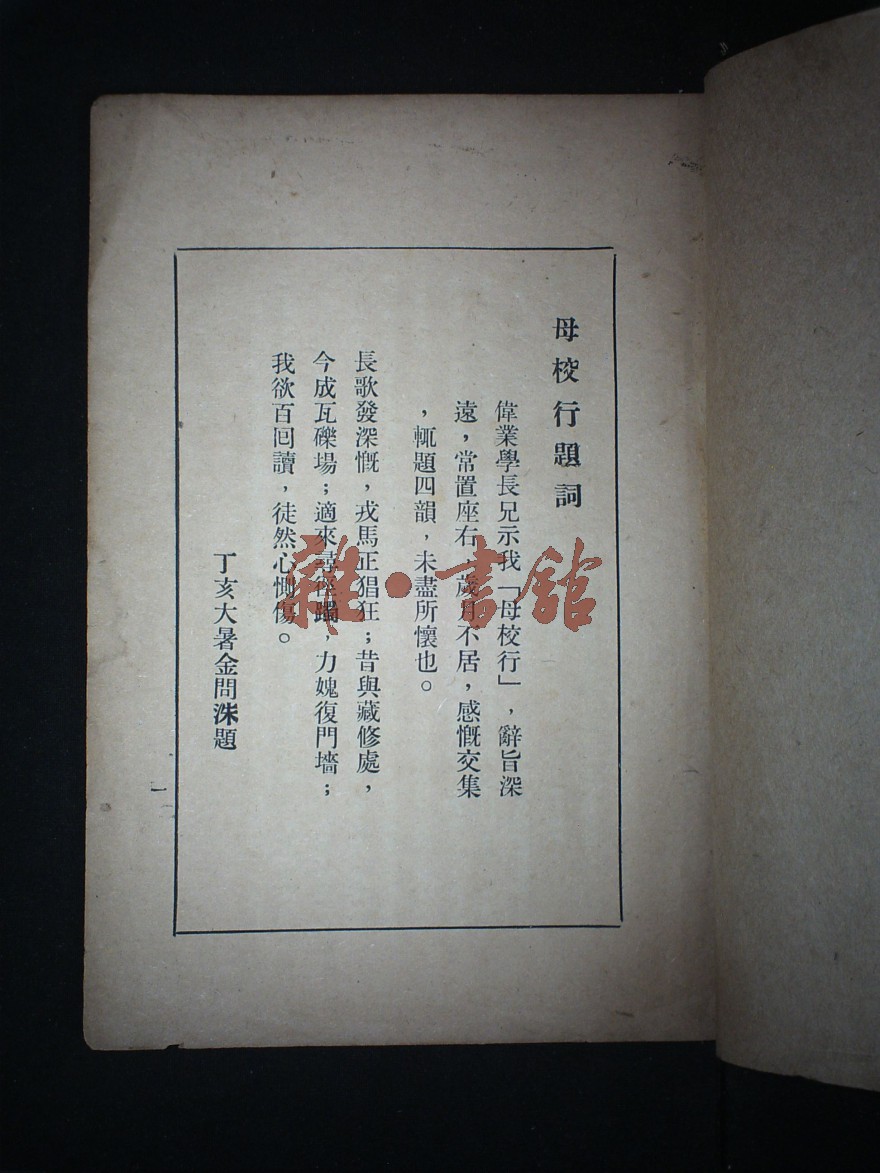 母校行題詞
偉業學長兄示我「母校行」，辭旨深
遠，常置座右，歲月不居，感慨交集
，輒題四韻，未盡所懷也。
長歌發深慨，戎馬正猖狂；昔與藏修處，
今成瓦礫場；適來尋 躅，力媿復門墻；
我欲百回讀，徒然心惻傷。
丁亥大暑金問洙題
一
雜·書館